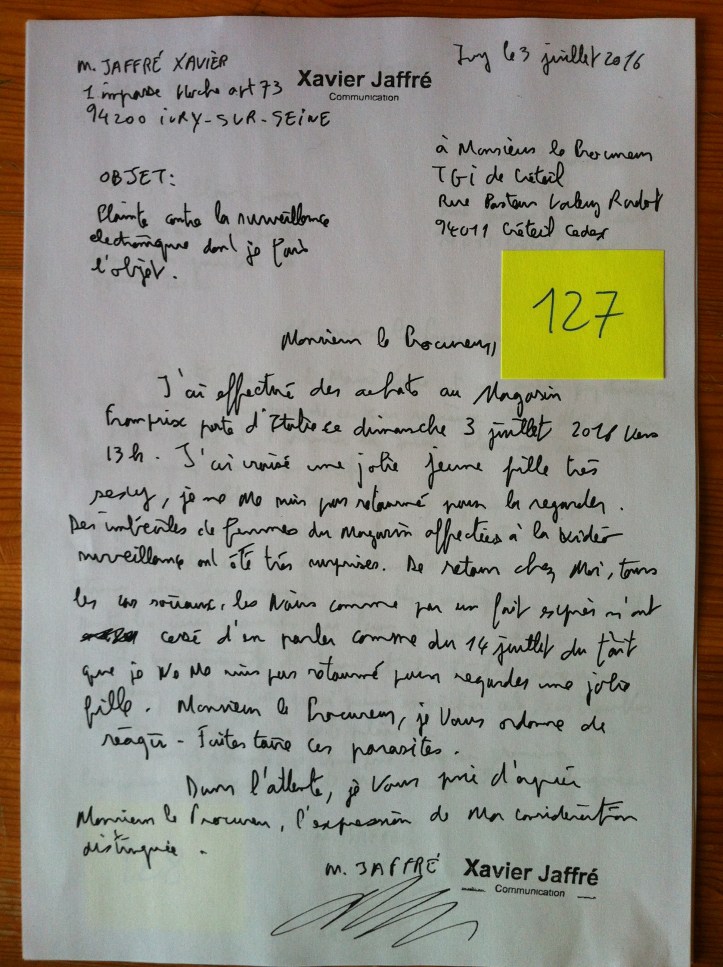 M. JAFFRÉ XAVIER
1 impasse art 73
94200 IVRY-SUR-SEINE
Xavier Jaffré
Communication
Ivry le 3 juillet 2016
à Monsieur le Procureur
TGI de Créteil
Rue Pasteur Valery Radot
94011 Créteil Cedex
OBJET:
Plainte contre la surveillance
electronique dont je fais
l'objet.
127
Monsieur le Procureur,
J'ai effectué des achats au Magasin
Franprix porte d'Italie ce dimanche 3 juillet 2016 vers
13h. J'ai croisé une jolie jeune fille très
sexy, je ne me suis pas retourné pour la regarder.
Des imbéciles de femmes du Magasin affectées à la vidéo
surveillance ont été très surprises. De retour chez Moi, tous
les cas sociaux, les Nains comme par un fait exprès n'ont
cessé d'en parler comme du 14 juillet du fait
que je Ne Me suis pas retourné pour regarder une jolie
fille. Monsieur le Procureur, je Vous ordonne de
réagir - Faites taire ces parasites.
Dans l'attente, je Vous prie d'agréer
Monsieur le Procureur, l'expression de Ma considération
distinguée.
M. JAFFRÉ
Xavier Jaffré
Communication